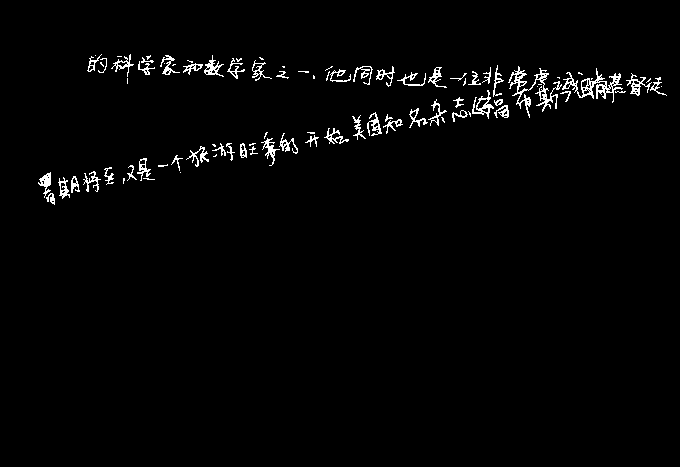 的科学家和数学家之一，他同时也是一位非常虔诚的基督徒
暑期将至，又是一个旅游旺季的开始。美国知名杂志《福布斯》